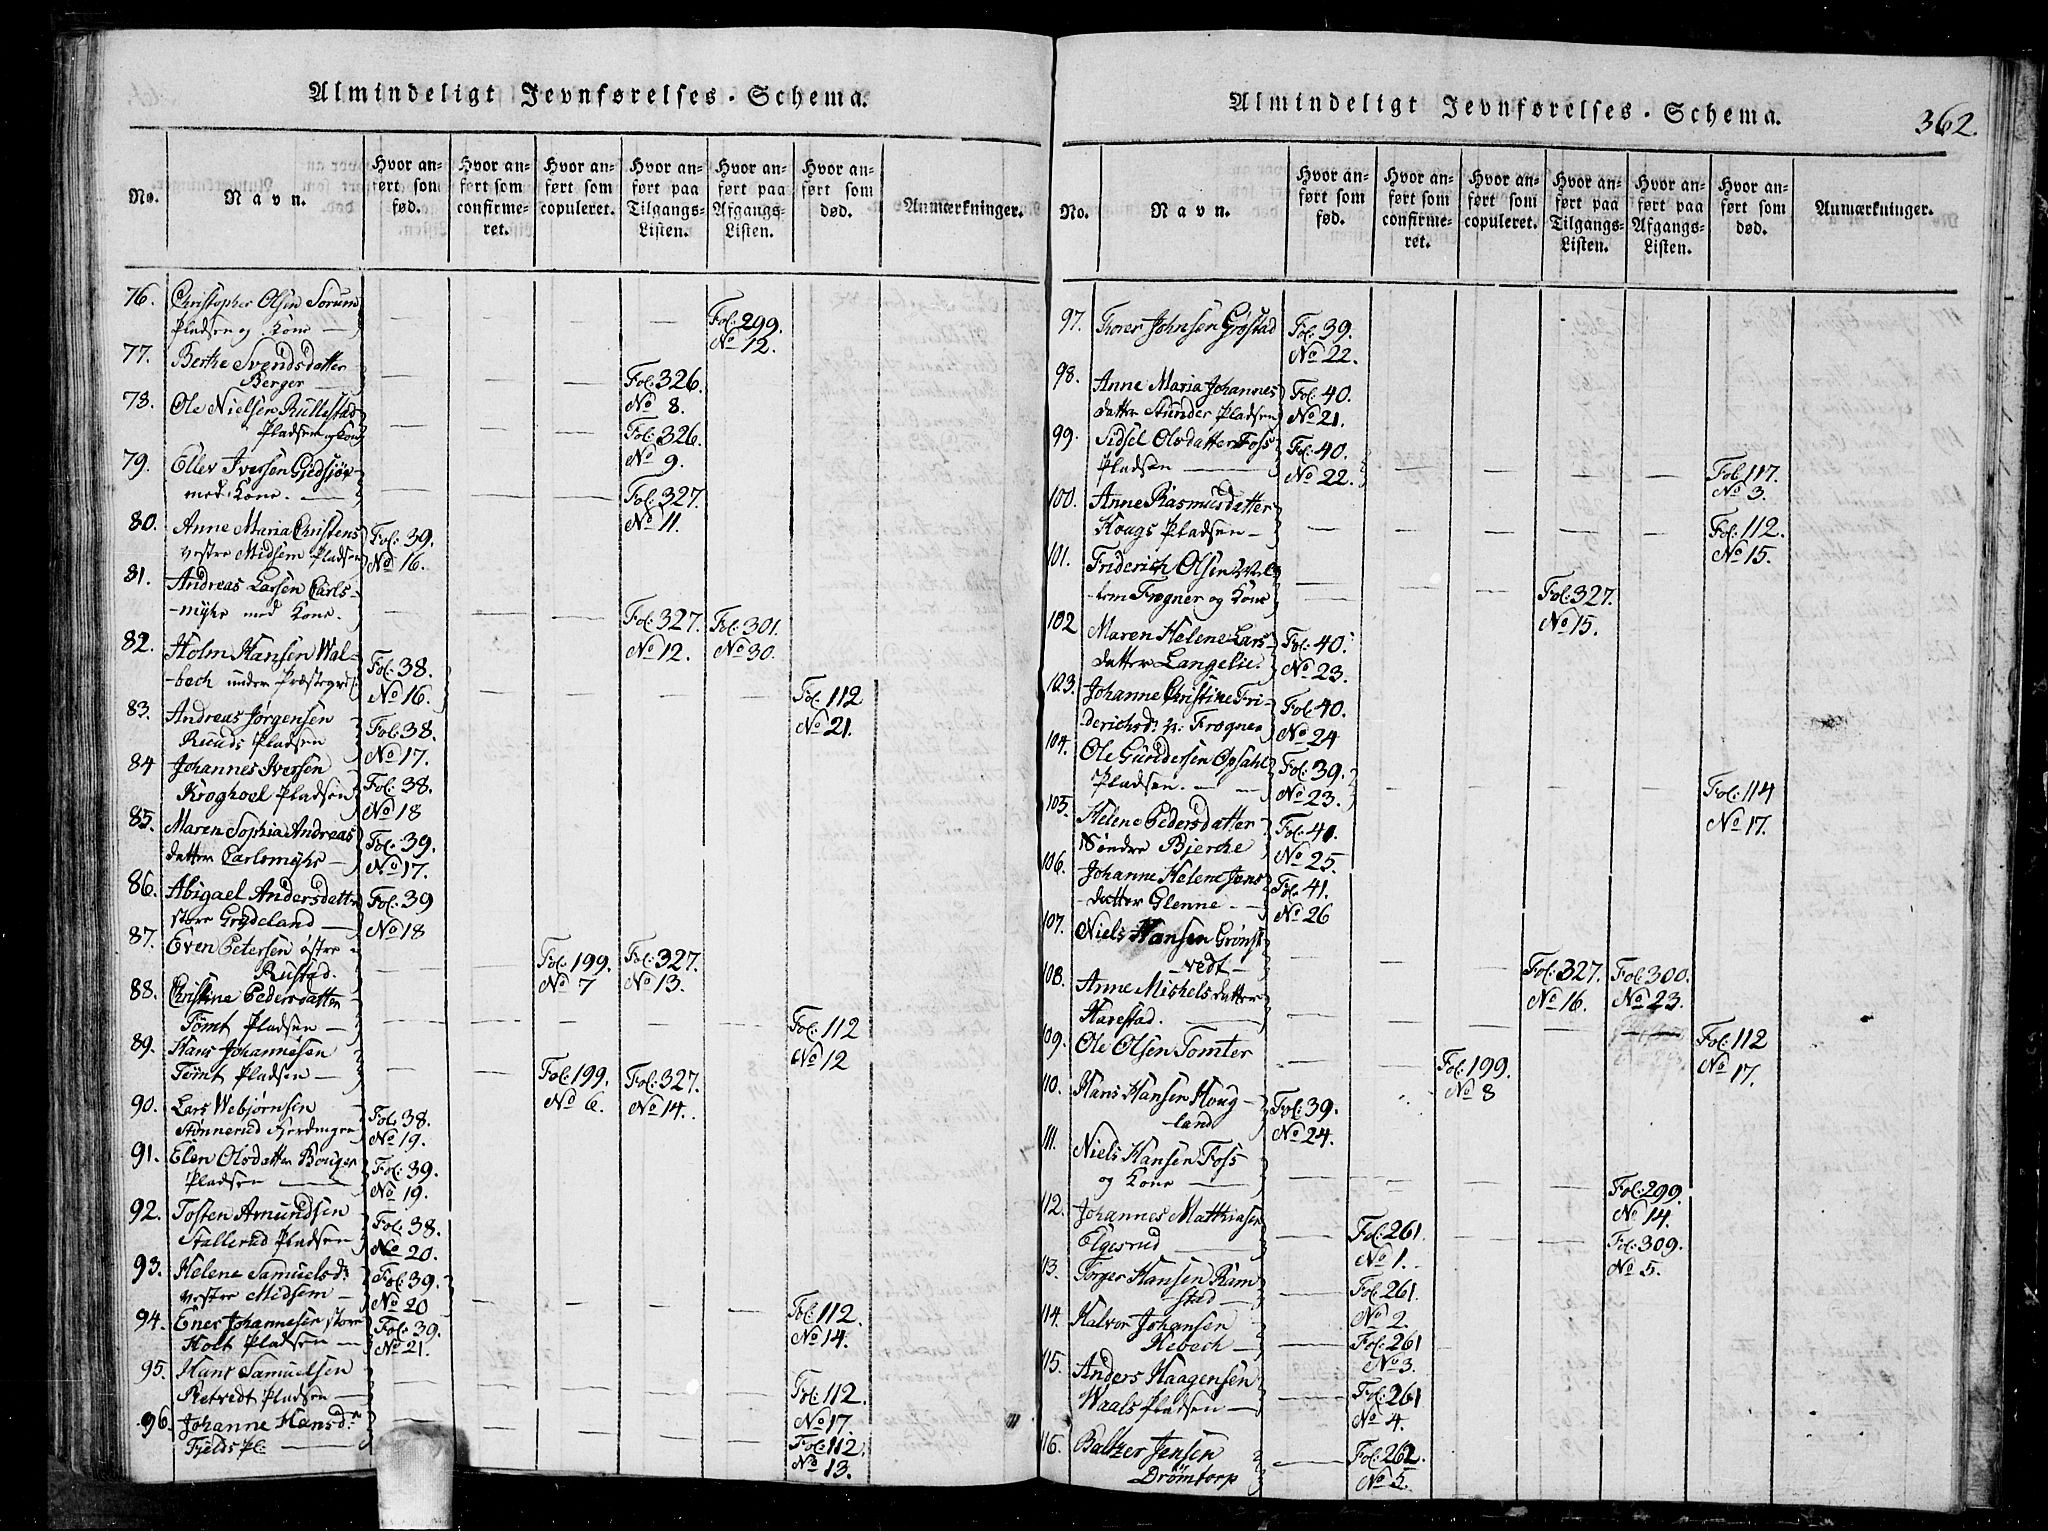 Almindeligt Jevnførelses-Schema.
No.
Navn.
Hvor anført som fød.
Hvor anført som confirmeret.
Hvor anført som copuleret.
Hvor anført paa Tilgangs-Listen.
Hvor anført paa Afgangs-Listen.
Hvor anført som død.
Anmærkninger.
76. Christopher Olsen Sorum
Pladsen og Kone — Fol: 299.
No 12.
77. Berthe Svendsdatter
Berger — Fol: 326.
No 8.
78. Ole Nielsen Rullestad
Pladsen og Kone Fol: 326.
No 9.
79. Eller Iversen Gjedsjøe
med Kone. — Fol: 327.
No 11.
80. Anne Maria Christens Fol: 39.
vestre Midsem Pladsen No 16.
81. Andreas Larsen Carls-
-myhr med Kone. Fol: 327. Fol: 301.
No 12. No 30.
82. Holm Hansen Wal- Fol: 38.
-bech under Præstegrd: No 16. Fol: 112
No 21.
83. Andreas Jørgensen Fol: 38.
Ruuds Pladsen No 17.
84 Johannes Iversen Fol: 38.
Kroghoel Pladsen No 18
85. Maren Sophia Andreas Fol: 39.
datter Carlsmyhr — No 17.
86. Abigael Andersdatter Fol: 39
store Grydeland — No 18
87. Even Petersen østre
Rustad. Fol: 199. Fol: 327.
No 7 No 13.
88. Christine Pedersdatter
Tømt Pladsen — Fol: 112
No 12
89. Hans Johannesen
Tømt Pladsen — Fol: 199. Fol: 327.
No 6. No 14.
90. Lars Webjørnsen Fol: 38.
Stønnerud Fjerdingen No 19.
91. Elen Olsdatter Bouger Fol: 39.
Pladsen — No 19.
92. Tosten Amundsen Fol: 38.
Stallerud Pladsen No 20.
93. Helene Samuelsdr Fol: 39.
vestre Midsem — No 20 Fol: 112.
No 14.
94. Ener Johannesen store Fol: 39.
Holt Pladsen — No 21.
95. Hans Samuelsen
Retvedt Pladsen — Fol: 112.
No 17.
96. Johanne Hansdr
Fjelds Pl: — Fol: 112.
No 13.
Almindeligt Jevnførelses-Schema.
362.
No.
Navn.
Hvor anført som fød.
Hvor anført som confirmeret.
Hvor anført som copuleret.
Hvor anført paa Tilgangs-Listen.
Hvor anført paa Afgangs-Listen.
Hvor anført som død.
Anmærkninger.
97. Thorer Johnsen Grøstad Fol: 39.
No 22.
98. Anne Maria Johannes Fol: 40.
datter Stunder Pladsen No 21.
99. Sidsel Olsdatter Foss Fol: 40.
Pladsen — No 22. Fol 117.
No 3.
100. Anne Rasmusdatter
Hougs Pladsen — Fol: 112.
No 15.
101. Friderich Olsen Wel-
-tem Frogner og Kone Fol: 327.
No 15.
102 Maren Helene Lars- Fol: 40.
datter Langelie. No 23.
103. Johanne Christine Fri- Fol: 40.
derichsdr v: Frogner No 24
104. Ole Gundersen Opsahl Fol: 39.
Pladsen. — No 23. Fol: 114
No 17.
105. Helene Pedersdatter Fol: 41.
Søndre Bjerche No 25.
106. Johanne Helene Jens Fol: 41.
-datter Glenne — No 26
107. Niels Hansen Grønst
vedt — Fol: 327. Fol: 300.
No 16. No 23.
108. Anne Mickelsdatter
Harestad. — Fol: 112
No 17.
109. Ole Olsen Tomter Fol: 199.
No 8
110. Hans Hansen Houg- Fol: 39.
land No 24.
111. Niels Hansen Foss
og Kone — Fol: 299.
No 14.
112. Johannes Matthiasen
Elgesrud — Fol: 261. Fol: 309.
No 1. No 5.
13. Torger Hansen Ram
stad — Fol: 261.
No 2.
114. Halvor Johansen
Hebech — Fol: 261
No 3.
115. Anders Haagensen
Waals Pladsen — Fol: 261
No 4.
116. Baltzer Jensen
Drømtorp Fol: 262.
No 5.